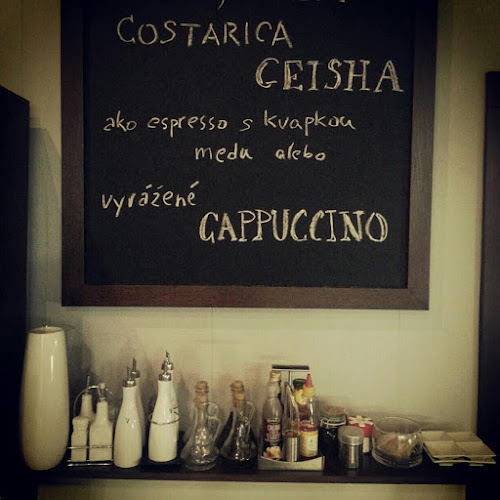 COSTARICA
GEISHA
ako espresso s kvapkou
medu alebo
vyrážené
CAPPUCCINO